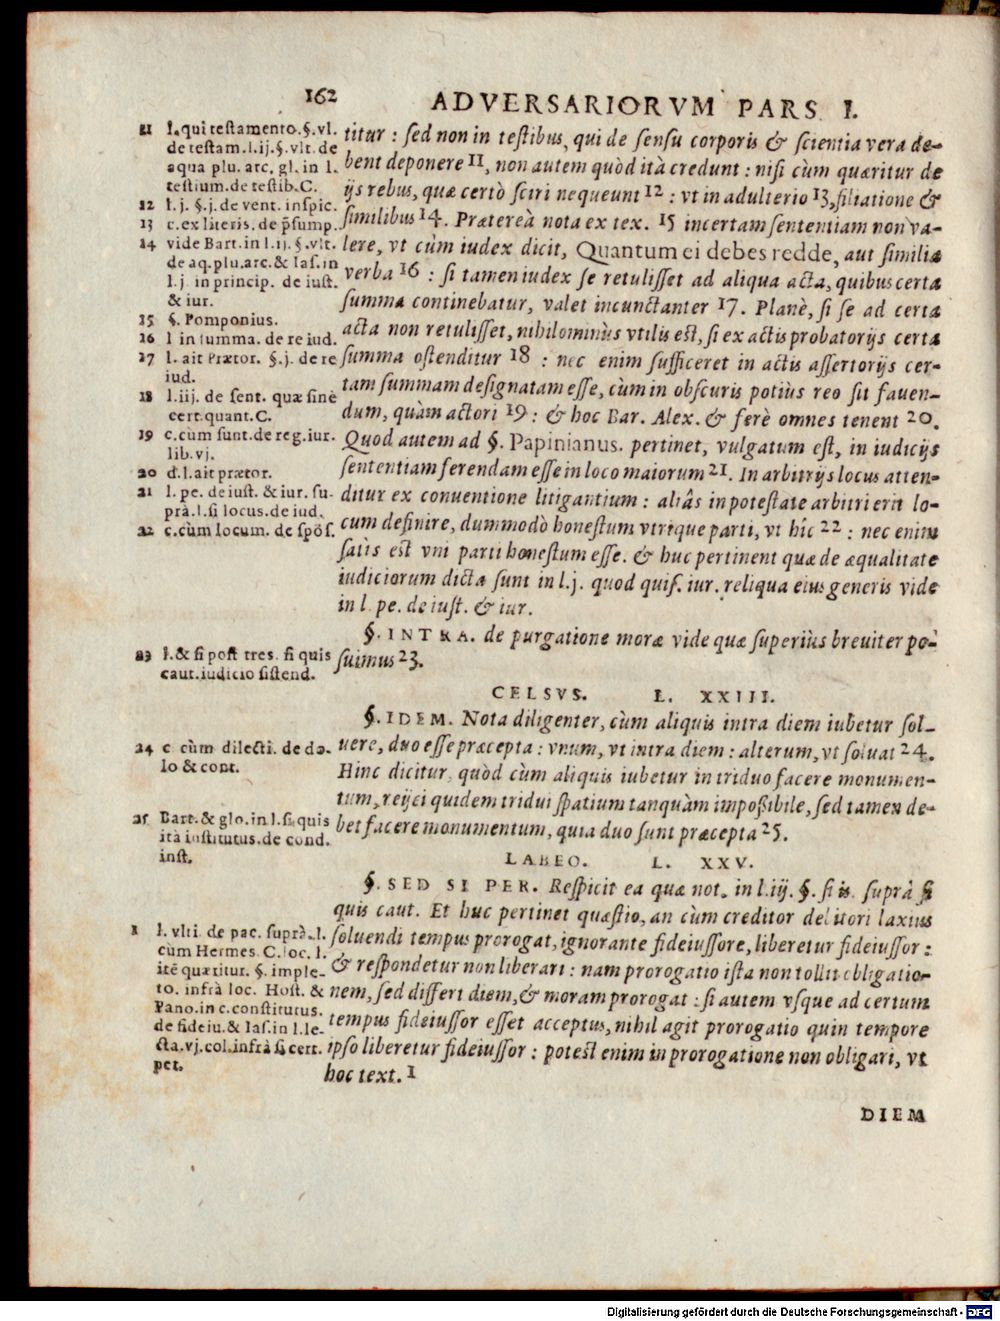 162 ADVERSARIORVM PARS I.
titur : sed non in testibus, qui de sensu corporis & scientia vera de-
bent deponere 11, non autem quòd ità credunt : nisi cùm quæritur de
ijs rebus, quæ certò sciri nequeunt 12 : vt in adulterio 13, filiatione &
similibus 14. Prætereà nota ex tex. 15 incertam sententiam non va-
lere, vt cùm iudex dicit, Quantum ei debes redde, aut similia
verba 16 : si tamen iudex se retulisset ad aliqua acta, quibus certa
summa continebatur, valet incunctanter 17. Planè, si se ad certa
acta non retulisset, nihilominùs vtilis est, si ex actis probatorijs certa
summa ostenditur 18 : nec enim sufficeret in actis assertorijs cer-
tam summam designatam esse, cùm in obscuris potiùs reo sit fauen-
dum, quàm actori 19 : & hoc Bar. Alex. & ferè omnes tenent 20.
Quod autem ad §. Papinianus. pertinet, vulgatum est, in iudicijs
sententiam ferendam esse in loco maiorum 21. In arbitrijs locus atten-
ditur ex conuentione litigantium : aliâs in potestate arbitri erit lo-
cum definire, dummodò honestum vtrique parti, vt hîc 22 : nec enim
satis est vni parti honestum esse. & huc pertinent quæ de æqualitate
iudiciorum dicta sunt in l.j. quod quis. iur. reliqua eius generis vide
in l. pe. de iust. & iur.
§. INTRA. de purgatione moræ vide quæ superiùs breuiter po-
suimus 23.
CELSVS. L. XXIII.
§. IDEM. Nota diligenter, cùm aliquis intra diem iubetur sol-
uere, duo esse præcepta : vnum, vt intra diem : alterum, vt soluat 24.
Hinc dicitur, quòd cùm aliquis iubetur in triduo facere monumen-
tum, reijci quidem tridui spatium tanquàm impoßibile, sed tamen de-
bet facere monumentum, quia duo sunt præcepta 25.
LABEO. L. XXV.
§. SED SI PER. Respicit ea quæ not. in l.iij. §. si is. suprà si
quis caut. Et huc pertinet quæstio, an cùm creditor debitori laxius
soluendi tempus prorogat, ignorante fideiussore, liberetur fideiussor :
& respondetur non liberari : nam prorogatio ista non tollit obligatio-
nem, sed differt diem, & moram prorogat : si autem vsque ad certum
tempus fideiussor esset acceptus, nihil agit prorogatio quin tempore
ipso liberetur fideiussor : potest enim in prorogatione non obligari, vt
hoc text. 1
DIEM
11 l. qui testamento. §. vl.
de testam. l.ij. §. vlt. de
aqua plu. arc. gl. in l.
testium. de testib. C.
12 l.j. §.j. de vent. inspic.
13 c. ex literis. de p̃sump.
14 vide Bart. in l.ij. §. vlt.
de aq. plu. arc. & Ias. in
l.j. in princip. de iust.
& iur.
15 §. Pomponius.
16 l in summa. de re iud.
17 l. ait Prætor. §.j. de re
iud.
18 l.iij. de sent. quæ sinè
cert. quant. C.
19 c. cùm sunt. de reg. iur.
lib. vj.
20 d. l. ait prætor.
21 l. pe. de iust. & iur. su-
prà. l. si locus. de iud.
22 c. cùm locum. de spõs.
23 l. & si post tres. si quis
caut. iudicio sistend.
24 c. cùm dilecti. de do-
lo & cont.
25 Bart. & glo. in l. si quis
ità institutus. de cond.
inst.
1 l. vlti. de pac. suprà. l.
cùm Hermes. C. loc. l.
itẽ quæritur. §. imple-
to. infrà loc. Host. &
Pano. in c. constitutus.
de fideiu. & Ias. in l. le-
sta. vj. col. infrà si cert.
pet.
Digitalisierung gefördert durch die Deutsche Forschungsgemeinschaft - DFG